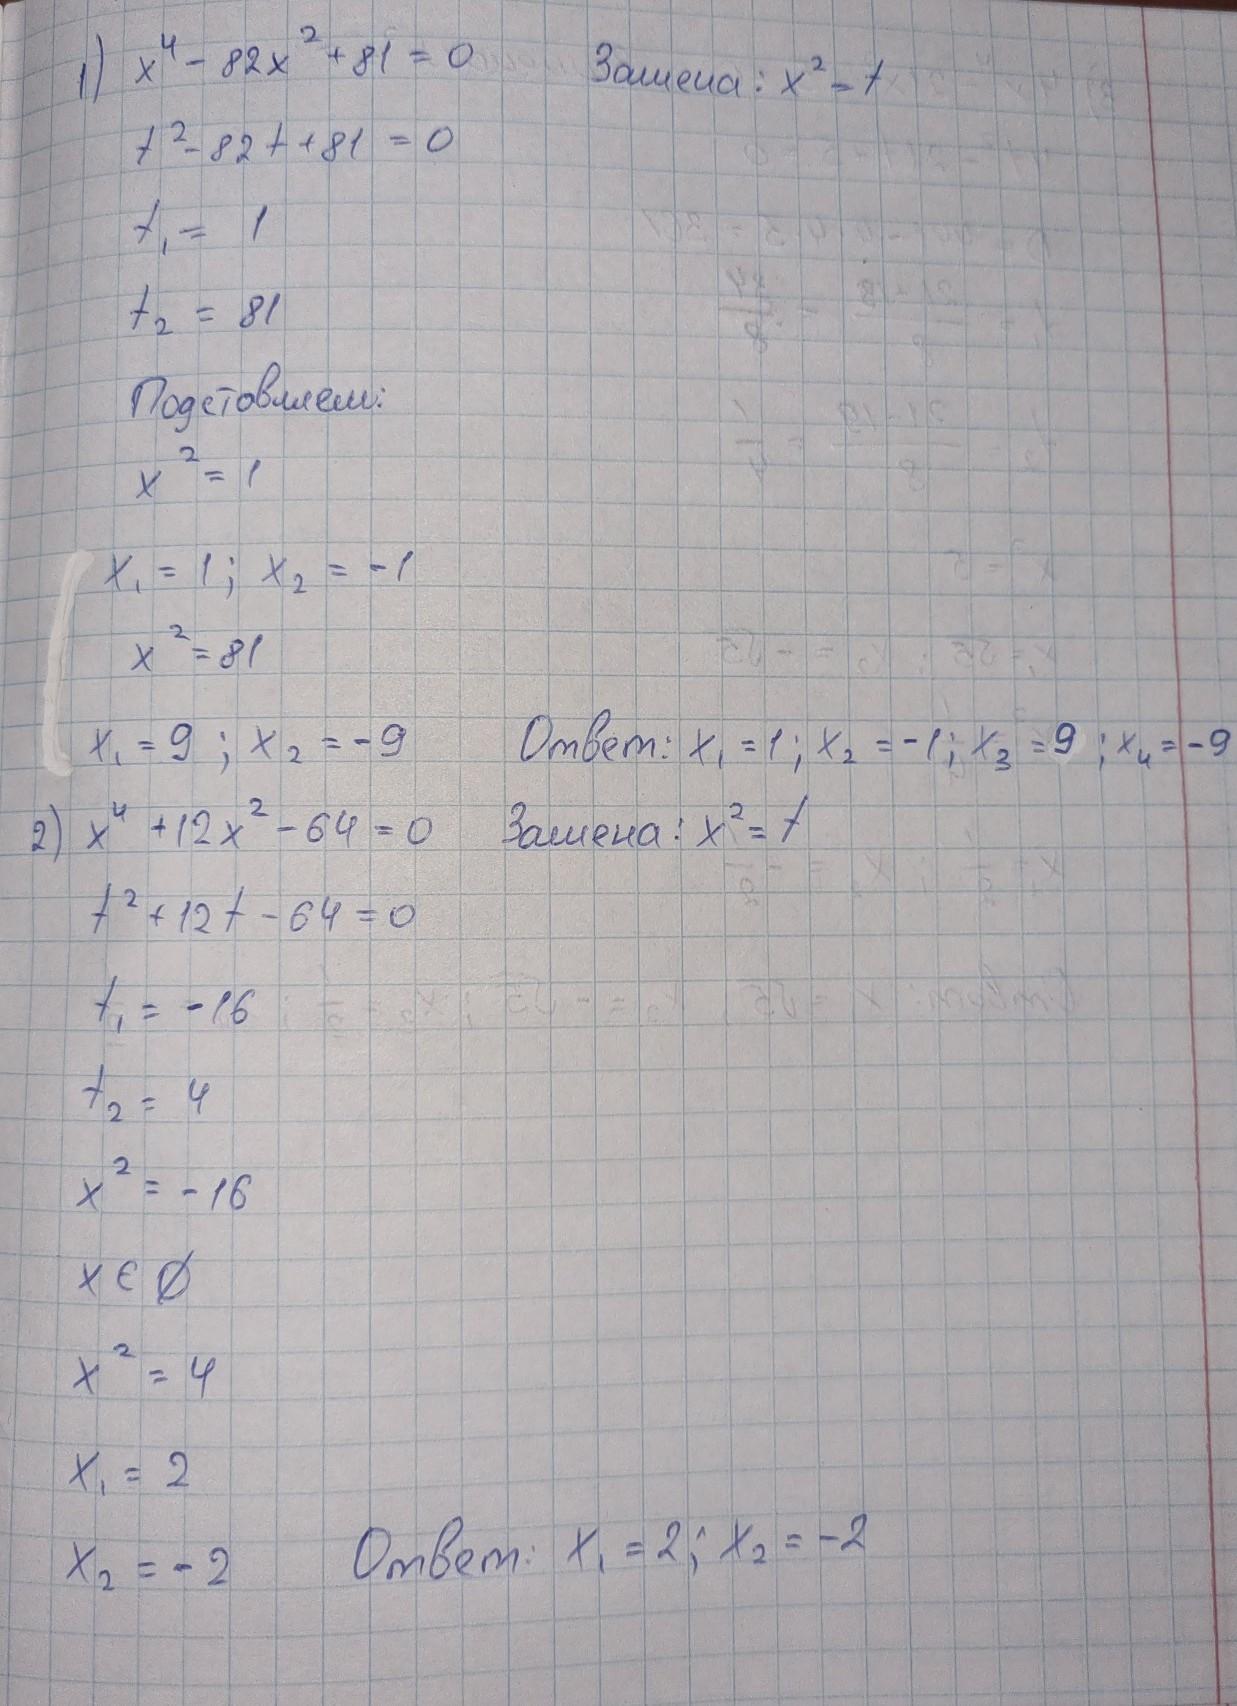 1) x⁴ - 82x² + 81 = 0 Замена: x² = t
t² - 82t + 81 = 0
t₁ = 1
t₂ = 81
Подстовляем:
x² = 1
x₁ = 1; x₂ = -1
x² = 81
x₁ = 9; x₂ = -9 Ответ: x₁ = 1; x₂ = -1; x₃ = 9; x₄ = -9
2) x⁴ + 12x² - 64 = 0 Замена: x² = t
t² + 12t - 64 = 0
t₁ = -16
t₂ = 4
x² = -16
x ∈ ∅
x² = 4
x₁ = 2
x₂ = -2 Ответ: x₁ = 2; x₂ = -2